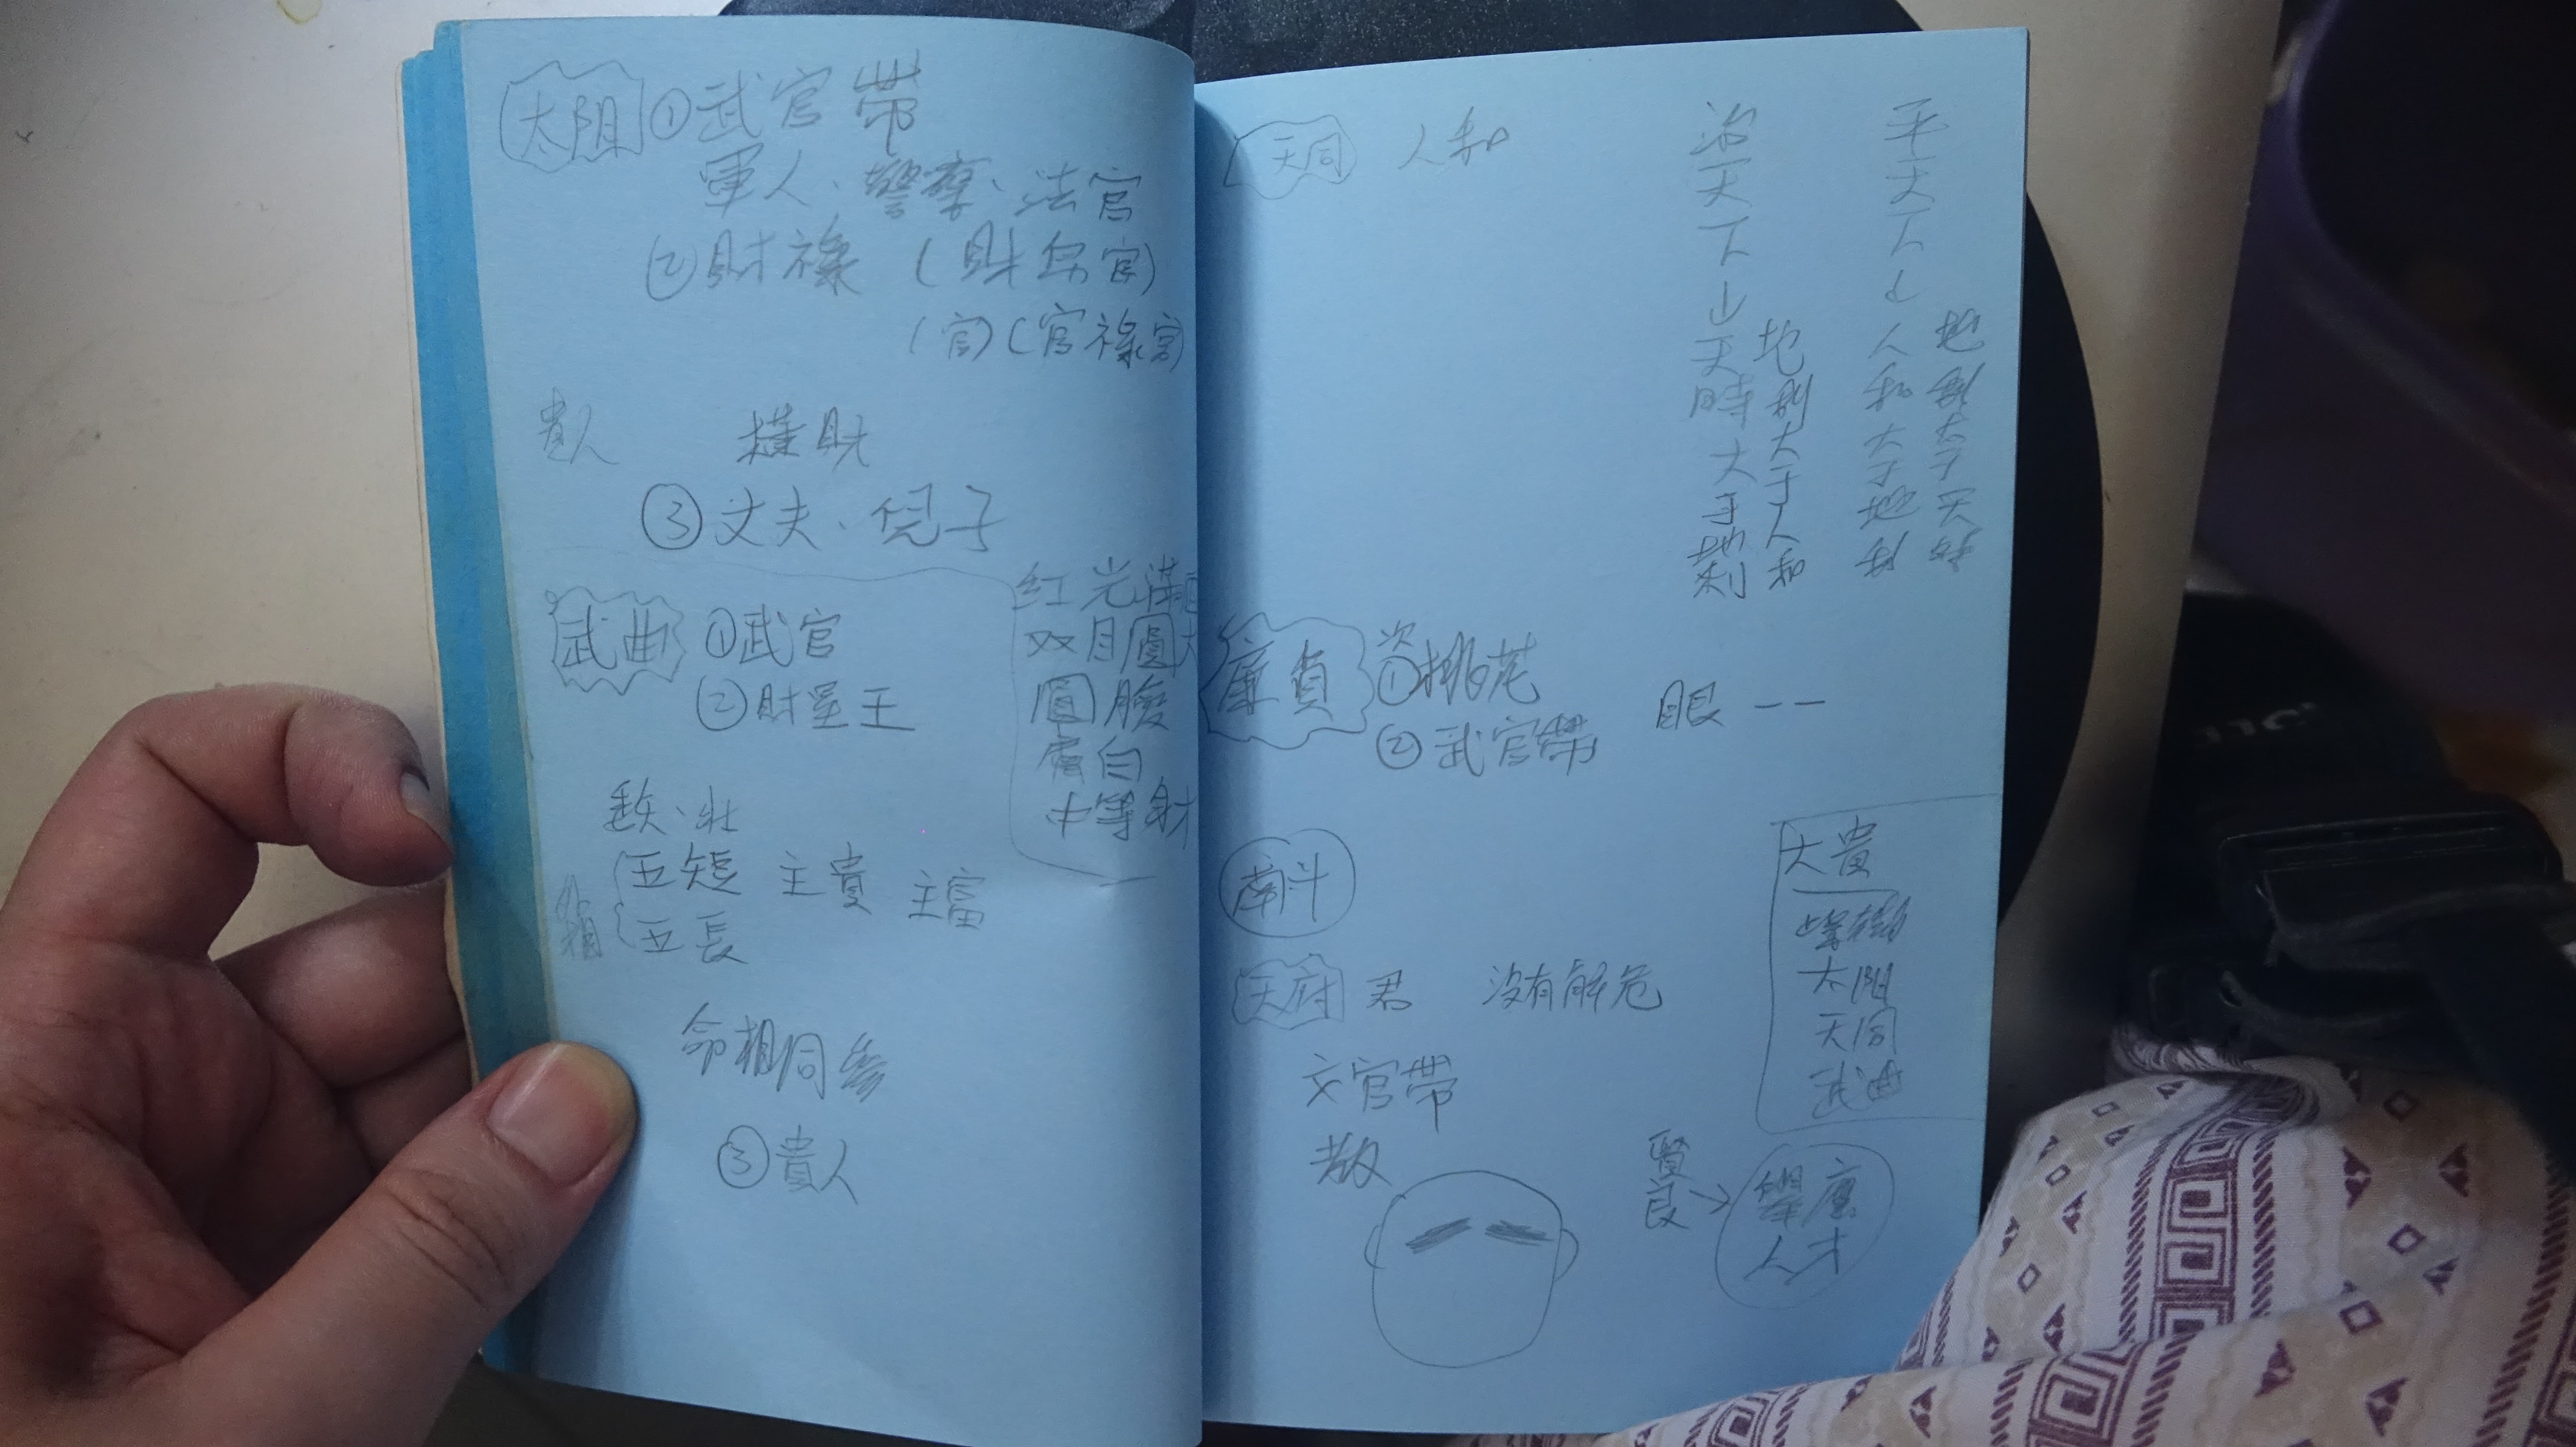 太阳 ①武官帶
軍人、警察、法官
②財祿 (財帛宮)
(官)(官祿宮)
貴人 横財
③丈夫、兒子
武曲 ①武官
②財星王
红光满面
双目圓大
圓臉
膚白
中等身材
矮、壯
五短 主貴 主富
五長
命相同參
③貴人
天同 人和
平天下→人和大于地利
地利大于天時
治天下→天時大于地利
地利大于人和
廉貞 次①桃花 眼 一 一
②武官帶
南斗
天府 君 没有解危
文官帶
大貴
太阳
天同
武曲
賢良→舉應人才